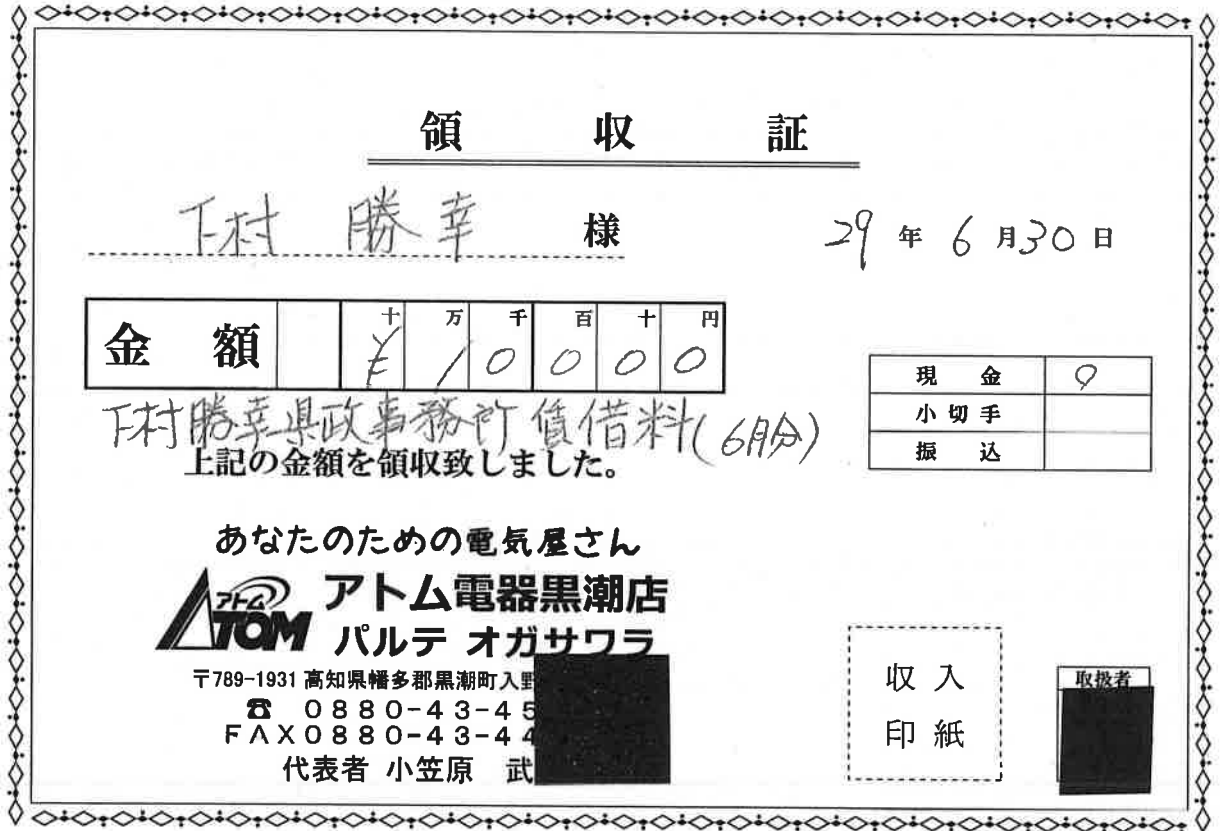 領収証
下村 勝幸 様
29年6月30日
金額 十 万 千 百 十 円
¥10000
下村勝幸県政事務所賃借料(6月分)
上記の金額を領収致しました。
現金 ○
小切手
振込
あなたのための電気屋さん
アトム ATOM アトム電器黒潮店
パルテ オガサワラ
〒789-1931 高知県幡多郡黒潮町入野
☎ 0880-43-45
FAX0880-43-44
代表者 小笠原 武
収入
印紙
取扱者